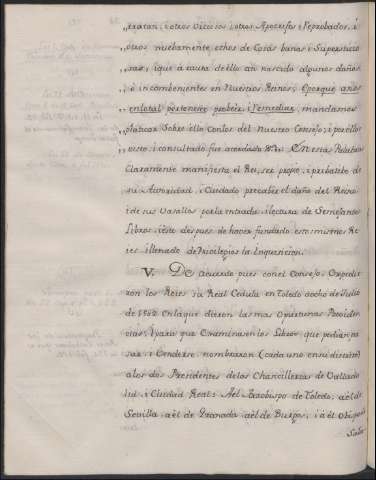 "tratan, i otros viciosos i otros Apocrifos i reprobados, i
"otros nuebamente echos de Cosas banas i Supersticio
"sas, i que à causa de ello an nascido algunos daños
"è incombenientes en Nuestros Reinos; è porque a nos
"en lo tal pertenece probeèr, i remediar, mandamos
"platicar Sobre ello con los del Nuestro Consejo; i por ellos
"visto i consultado fue acordado &c. En estas Palabras
Claramente manifiesta el Rei, ser propio, i pribatibo de
su Autoridad, i Cuidado precaber el daño del Reino
i de sus Vasallos por la entrada i lectura de Semejantes
Libros, i esto despues de haver fundado estos mismos Re
ies i llenado de Privilegios la Inquisicion.
V. De acuerdo pues con el Consejo Expedie
ron los Reies su Real Cedula en Toledo à ocho de Julio
de 1502 en la que dieron las mas Oportunas Providen
cias, i para que Examinasen los Libros que pedian pa
sar i Venderse, nombraron (cada uno en su distrito)
a los dos Presidentes de las Chancillerias de Vallado
lid i Ciudad Real: Al Arzobispo de Toledo, a èl de
Sevilla, a èl de Granada, a èl de Burgos, i à èl Obispo de
Sala